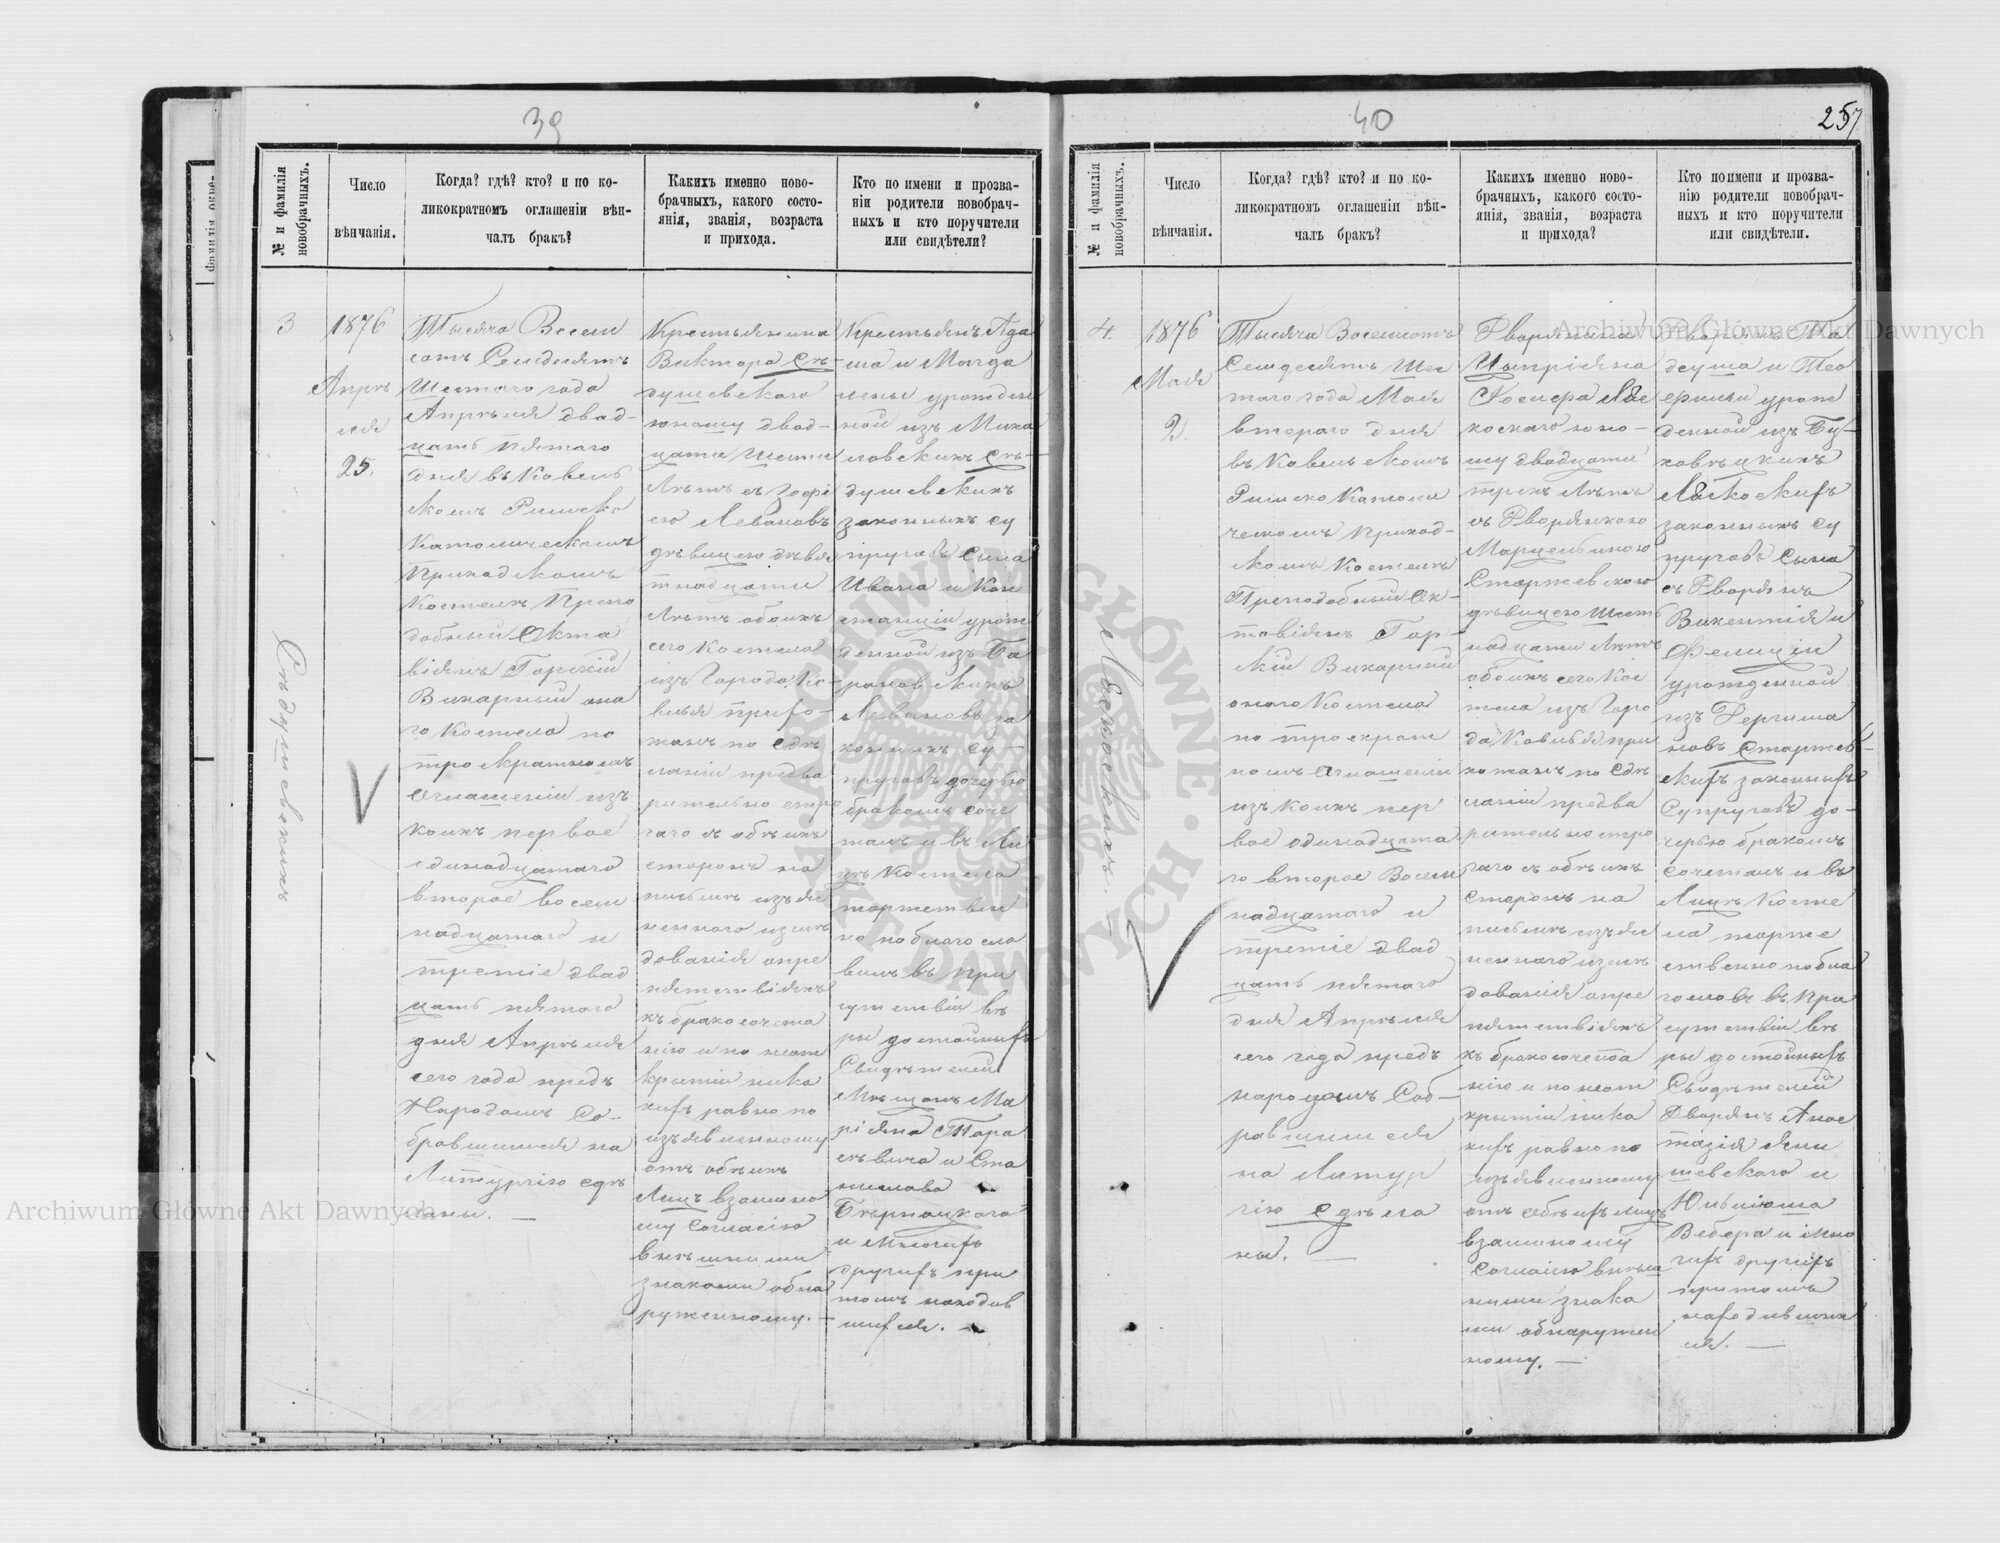 39
№ и фамилія новобрачныхъ.
Число вѣнчанія.
Когда? гдѣ? кто? и по ко-
ликократномъ оглашеніи вѣн-
чалъ бракъ?
Каихъ именно ново-
брачныхъ, какого состо-
янія, званія, возраста
и прихода.
Кто по имени и прозва-
ніи родители новобрач-
ныхъ и кто поручители
или свидѣтели?
3
Сѣдушевскихъ
1876
Апрѣ
ля
25.
Тысяча Восемь
сотъ Семдесятъ
Шестаго года
Апрѣля двад-
цать пятаго
дня въ Ковель
скомъ Римско
Католическомъ
Приходскомъ
Костелѣ Препо
добный Окта
віянъ Горскій
Викарный она
го Костела по
троекратномъ
оглашеніи изъ
коихъ первое
одинадцатаго
второе восем
надцатаго и
третіе двад
цать пятаго
дня Апрѣля
сего года предъ
Народомъ Со-
бравшимся на
Литургію сдѣ
ланы. —
Крестьянина
Виктора Сѣ-
душевскаго
юношу двад-
цати Шести
лѣтъ съ Зофі
ею Левановъ
дѣвицею двѣ
надцати
Лѣтъ обоихъ
сего Костела
изъ Города Ко-
веля прихо-
жанъ по сдѣ
ланіи предва
рительно стро
гаго съ обѣихъ
сторонъ на
письмѣ изъяс
неннаго изслѣ
дованія опре
пятствіяхъ
къ бракосочета
нію и по неот
крытіи ника
кихъ равно по
изъявленному
отъ обѣихъ
Лицъ взаимно
му согласію
внѣшними
знаками обна
руженному. —
Крестьянъ Ада
ма и Магда
лены урожден
ной изъ Миха
ловскихъ Сѣ-
душевскихъ
законныхъ су
пруговъ сына
Ивана и Кон
станціи урож
денной изъ Ба
рановскихъ
Левановъ за
конныхъ су-
пруговъ дочерью
бракомъ соче
талъ и въ Ли
цѣ Костела
торжествен
но поблагосло
вилъ въ при
сутствіи вѣ
ры достойныхъ
Свидѣтелей
Мѣщанъ Ма
ріяна Тара
севича и Ста
нислава
Бѣрнацкого
и многихъ
другихъ при
томъ находив
шихся. —
40
257
№ и фамилія новобрачныхъ.
Число вѣнчанія.
Когда? гдѣ? кто? и по ко-
ликократномъ оглашеніи вѣн-
чалъ бракъ?
Каихъ именно ново-
брачныхъ, какого состо-
янія, званія, возраста
и прихода?
Кто по имени и прозва-
нію родители новобрач-
ныхъ и кто поручители
или свидѣтели.
4.
Лясковскихъ.
1876
Мая
2.
Тысяча Восемсотъ
Семдесятъ Шес
таго года Мая
втораго дня
въ Ковельскомъ
Римско Католи
ческомъ приход-
скомъ Костелѣ
Преподобный Ок-
тавіянъ Гор-
скій Викарный
онаго Костела
по троекрат
номъ оглашеніи
изъ коихъ пер
вое одинадцата
го второе Восем
надцатаго и
третіе двад
цать пятаго
дня Апрѣля
сего года предъ
народомъ Соб-
равшимся
на Литур
гію сдѣла
ны. —
Дворянина
Ципріяна
Юзефа
коскаго юно-
шу двадцати
трехъ лѣтъ
съ Дворянкою
Марцелиною
Старжевскою
дѣвицею Шест
надцати Лѣтъ
обоихъ сего Кос
тела изъ Горо
да Ковеля при
хожанъ по сдѣ
ланіи предва
рительно стро
гаго съ обѣихъ
Сторонъ на
письмѣ изъяс
неннаго изслѣ
дованія опре
пятствіяхъ
къ бракосочета
нію и по неот
крытіи ника
кихъ равно по
изъявленному
отъ обѣихъ лицъ
взаимному
согласію внѣш
ними знака
ми обнаружен
ному. —
Дворянъ Та
деуша и Тео
филіи урож
денной изъ Бу-
ковецкихъ
законныхъ су
пруговъ сына
съ Дворянъ
Викентія и
Фелиціи
урожденной
изъ
новъ Старжев-
скихъ законныхъ
Супруговъ до-
черью бракомъ
сочеталъ и въ
Лицѣ Косте
ла торже
ственно побла
гословъ въ при
сутствіи вѣ
ры достойныхъ
Свидѣтелей
Дворянъ Анас
тазія Яни
шевскаго и
Юліюша
Вебера и мно
гихъ другихъ
притомъ
находивших
ся. —
Archiwum Główne Akt Dawnych
Archiwum Główne Akt Dawnych
ARCHIWUM GŁÓWNE • AKT DAWNYCH •